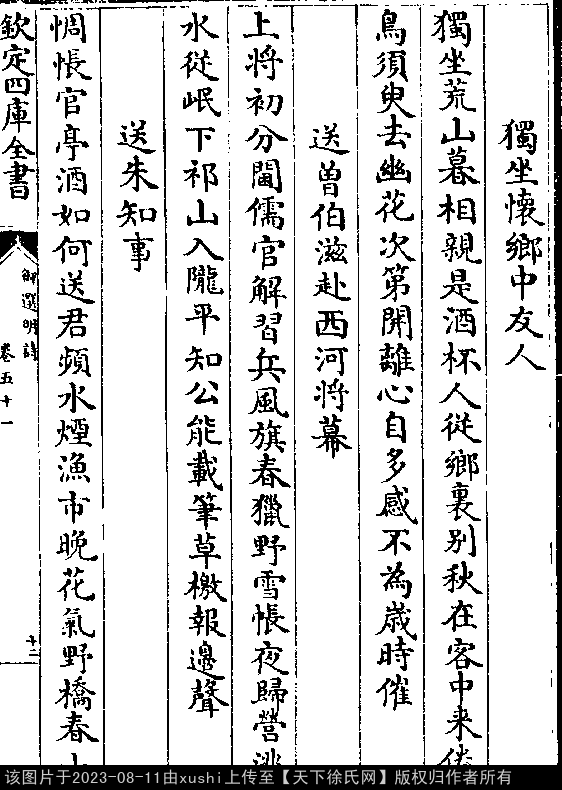 獨坐懷鄉中友人
獨坐荒山暮相親是酒杯人從鄉裏别秋在客中来倦
鳥須臾去幽花次第開離心自多感不為歲時催
送曾伯滋赴西河将幕
上将初分閫儒官解習兵風旗春獵野雪帳夜歸營
水從岷下祁山入隴平知公能載筆草檄報邊聲
送朱知事
惆悵官亭酒如何送君頻水煙漁市晚花氣野橋春
欽定四庫全書
明詩
卷五十一
十二
该图片于2023-08-11由xushi上传至【天下徐氏网】版权归作者所有